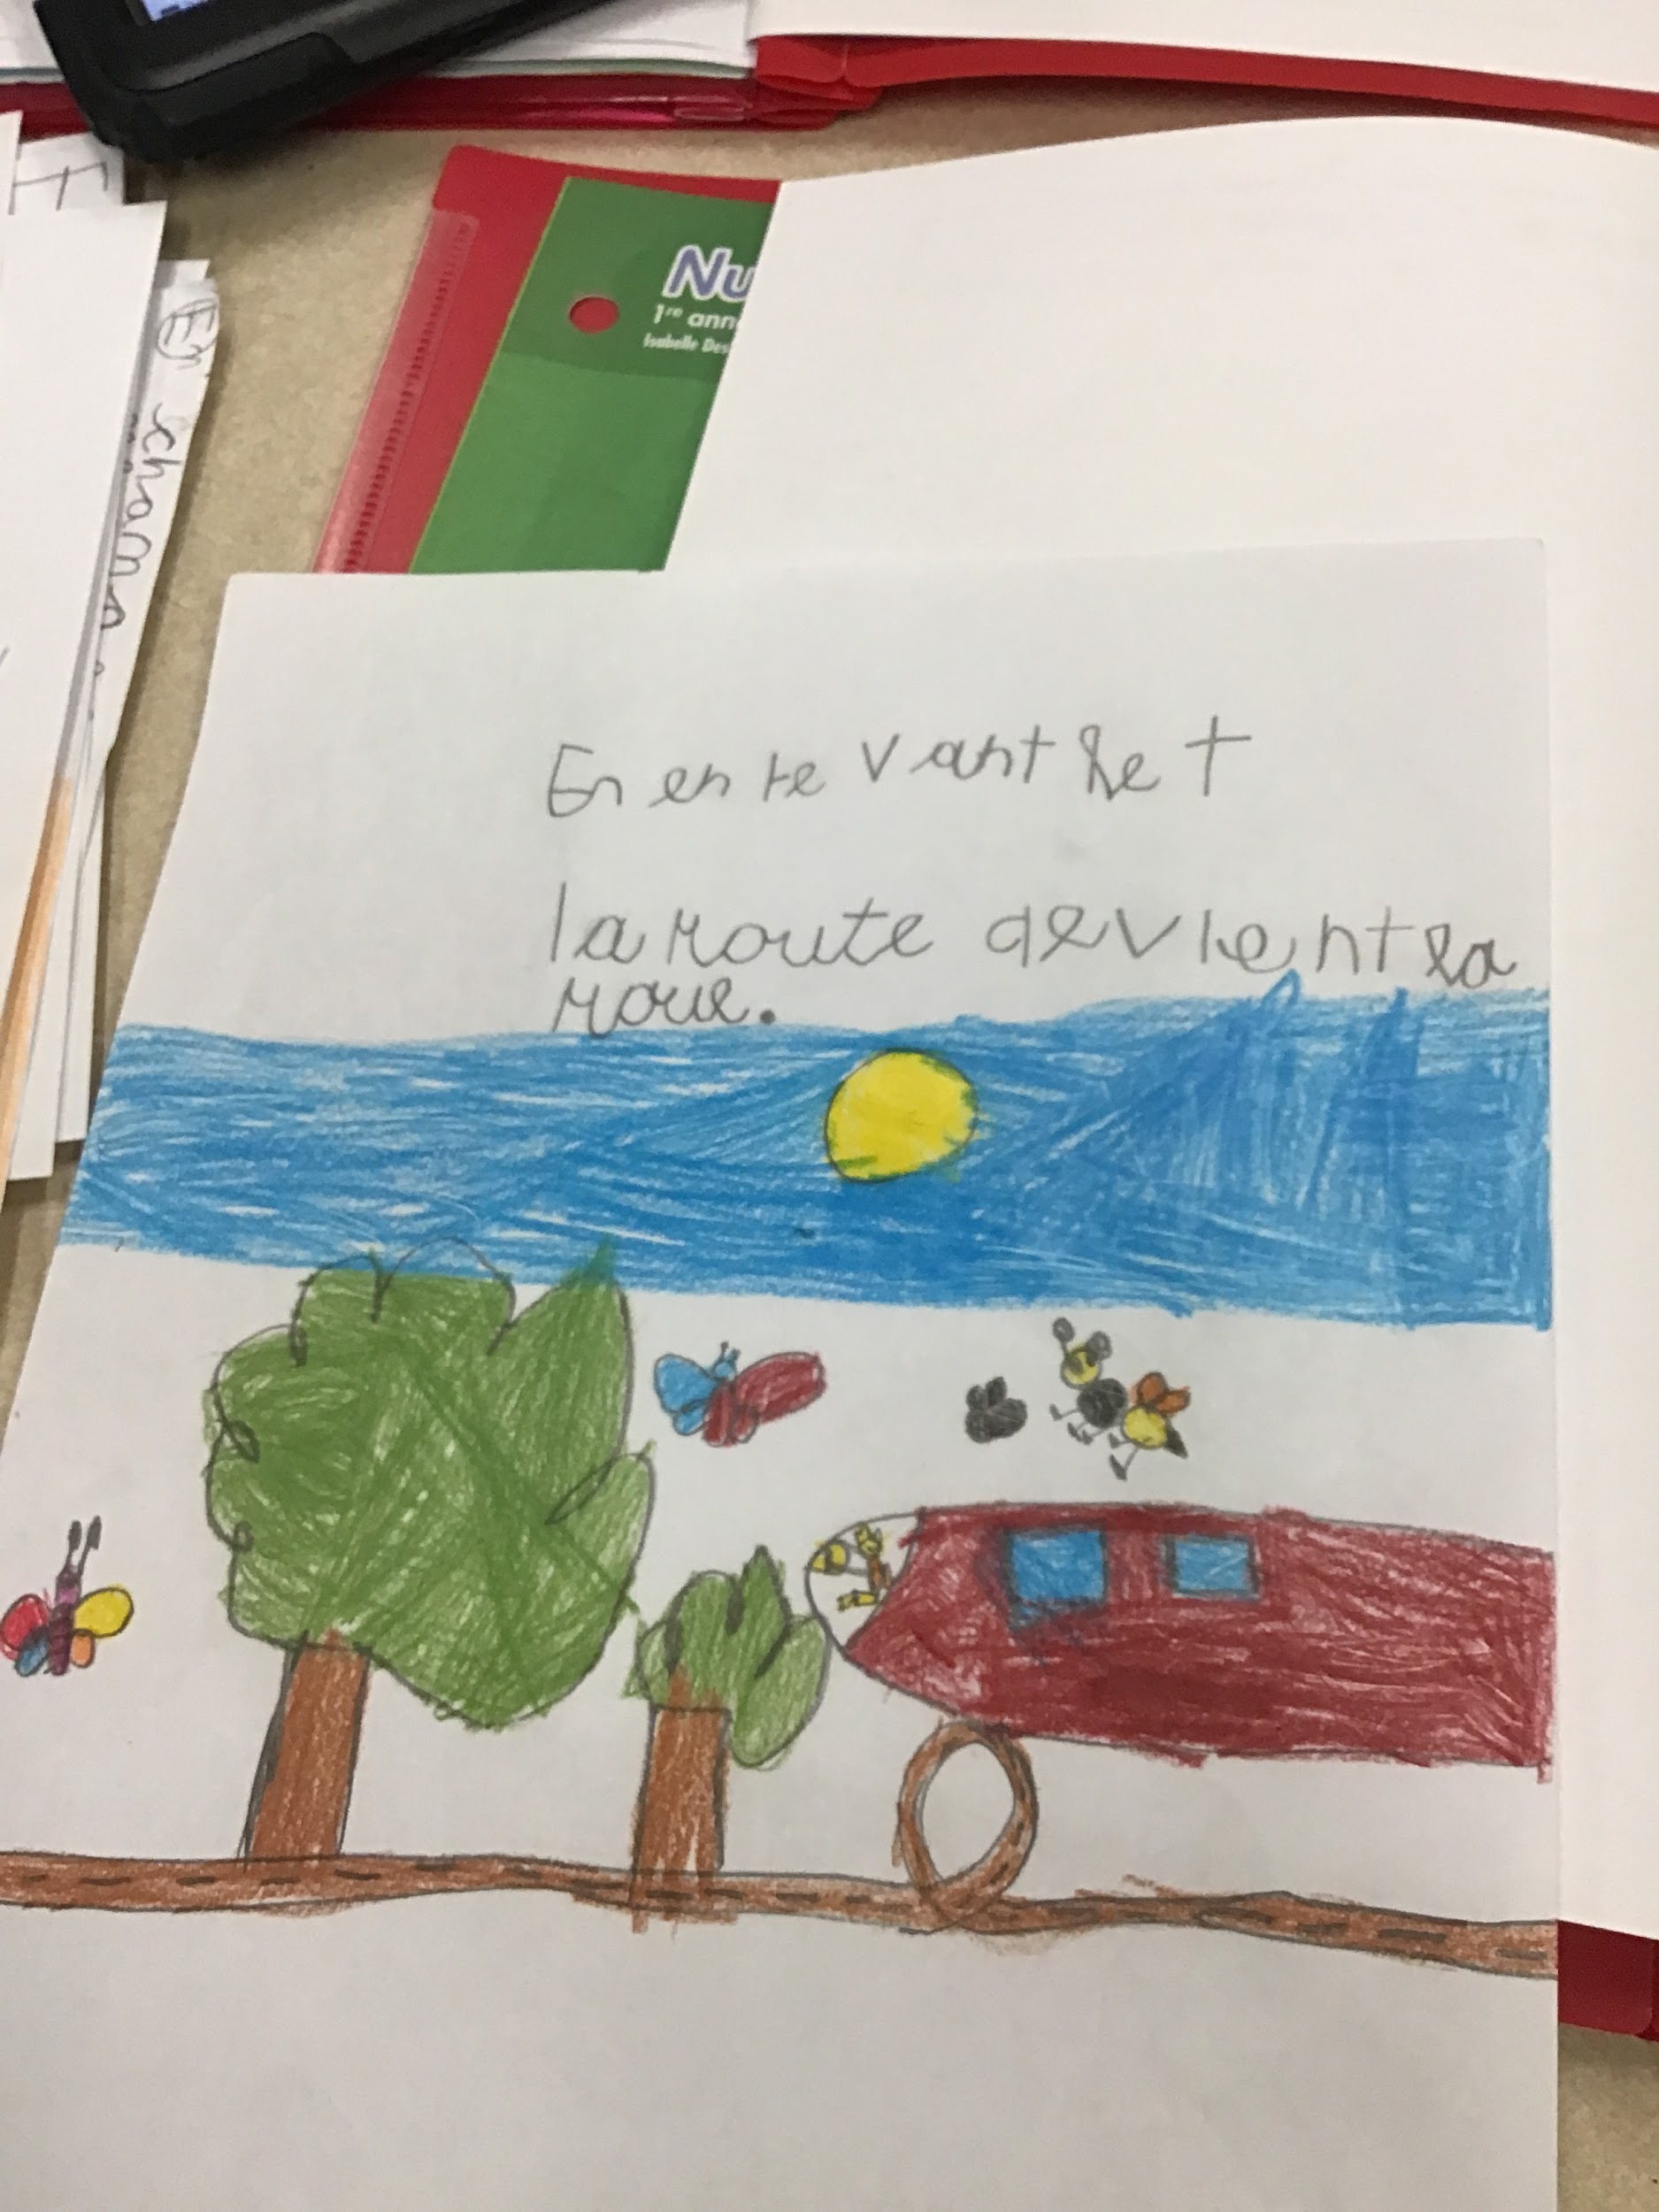 Nu
1re ann
Isabelle Des
En
En en le vant le t
la route devient la
roue.